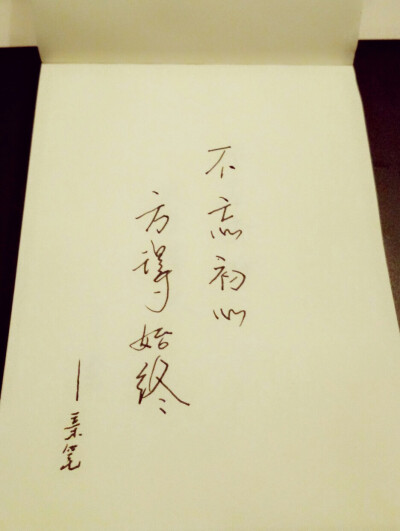 不忘初心
方得始终
——素笔